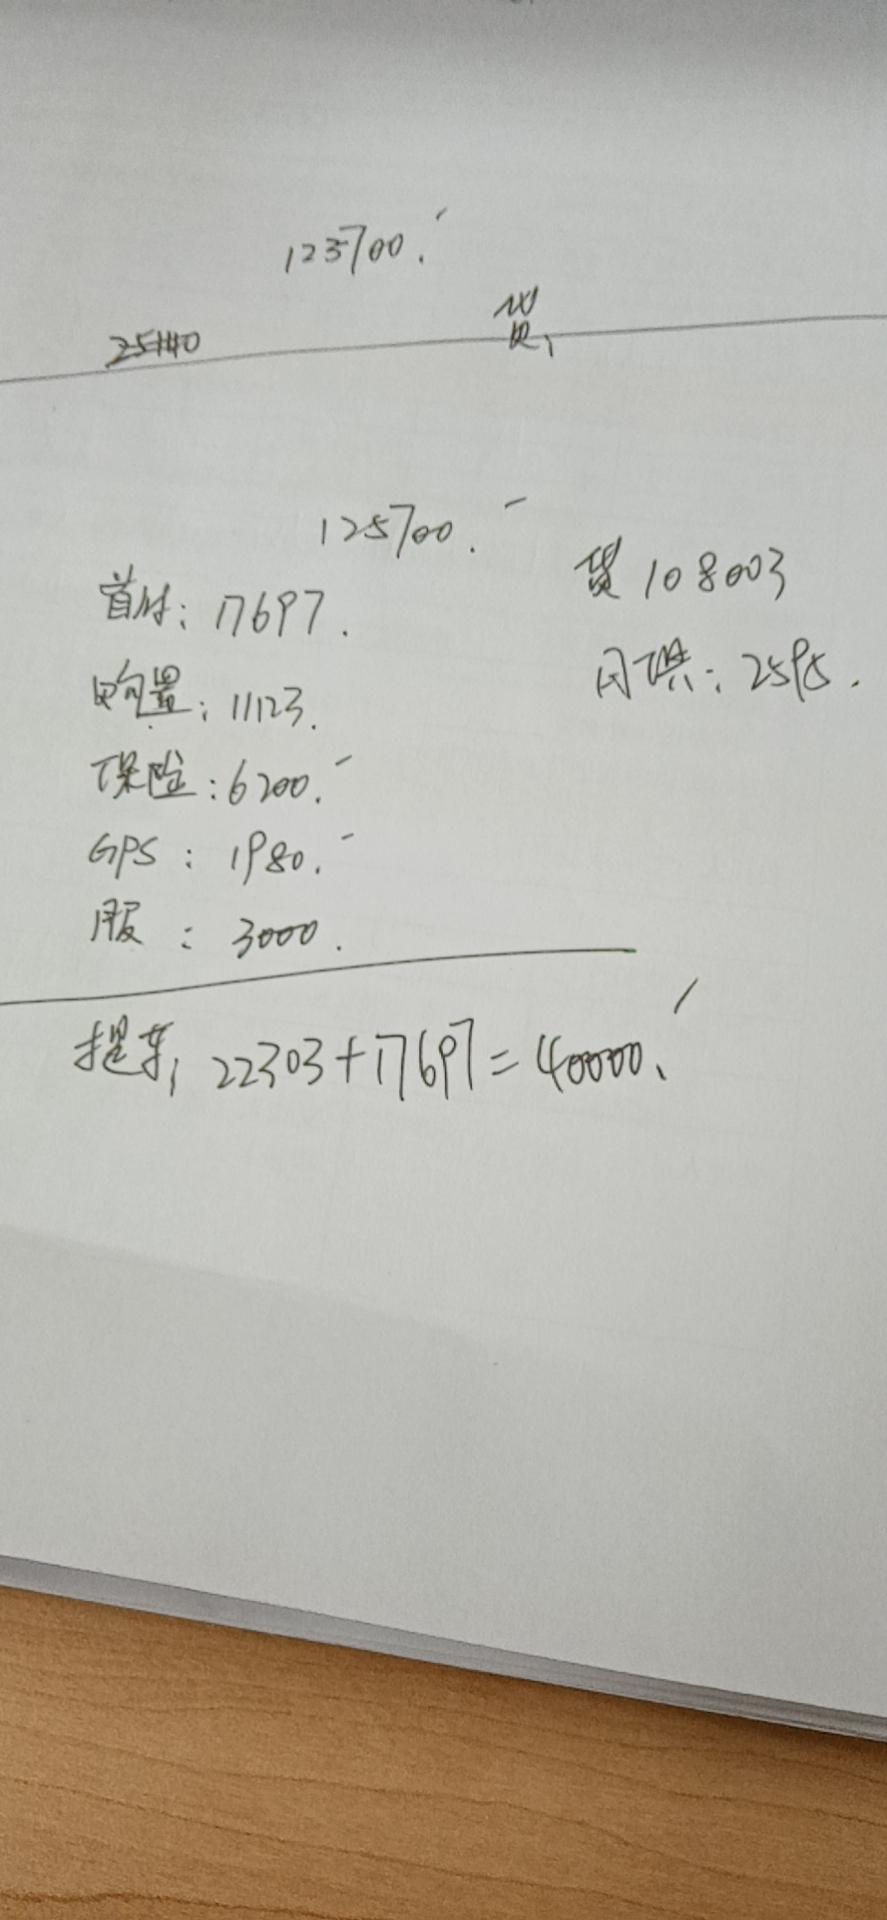 123700.
贷
125700.
贷 108003
首付: 17697.
月供: 2595.
购置: 11123.
保险: 6200.
GPS: 1980.
服: 3000.
提车, 22303+17697=40000.